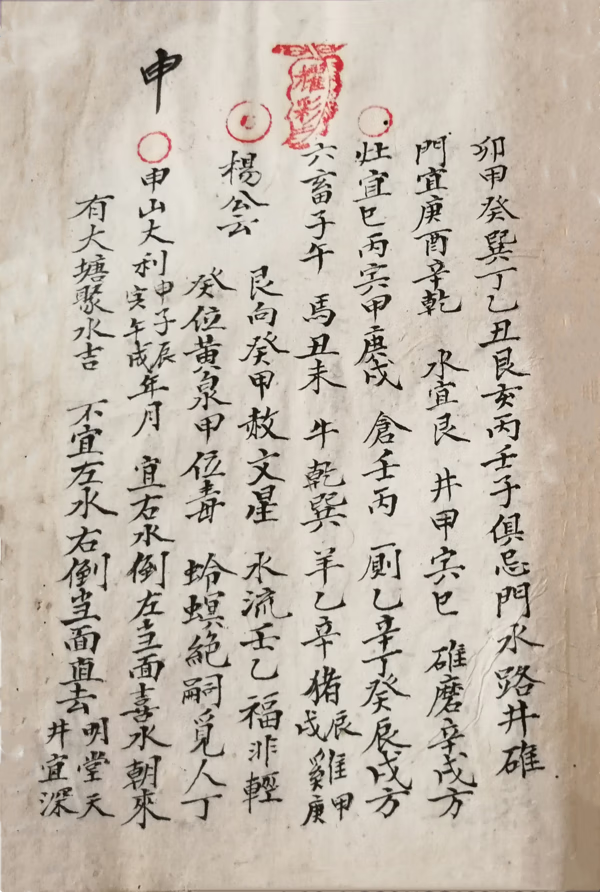 卯甲癸巽丁乙丑艮亥丙壬子俱忌門水路井碓
門宜庚酉辛乾 水宜艮 井甲寅巳 碓磨辛戌方
灶宜巳丙寅甲庚戌 倉壬丙 厠乙辛丁癸辰戌方
六畜子午 馬丑未 牛乾巽 羊乙辛 猪辰戌 雞甲庚
楊公云
艮向癸甲救文星 水流壬乙福非輕
癸位黃泉甲位毒 蛉螟絕嗣覓人丁
申山大利申子辰寅午戌年月 宜右水倒左当面喜水朝來
有大塘聚水吉 不宜左水右倒当面直去明堂天井宜深
申
耀彩